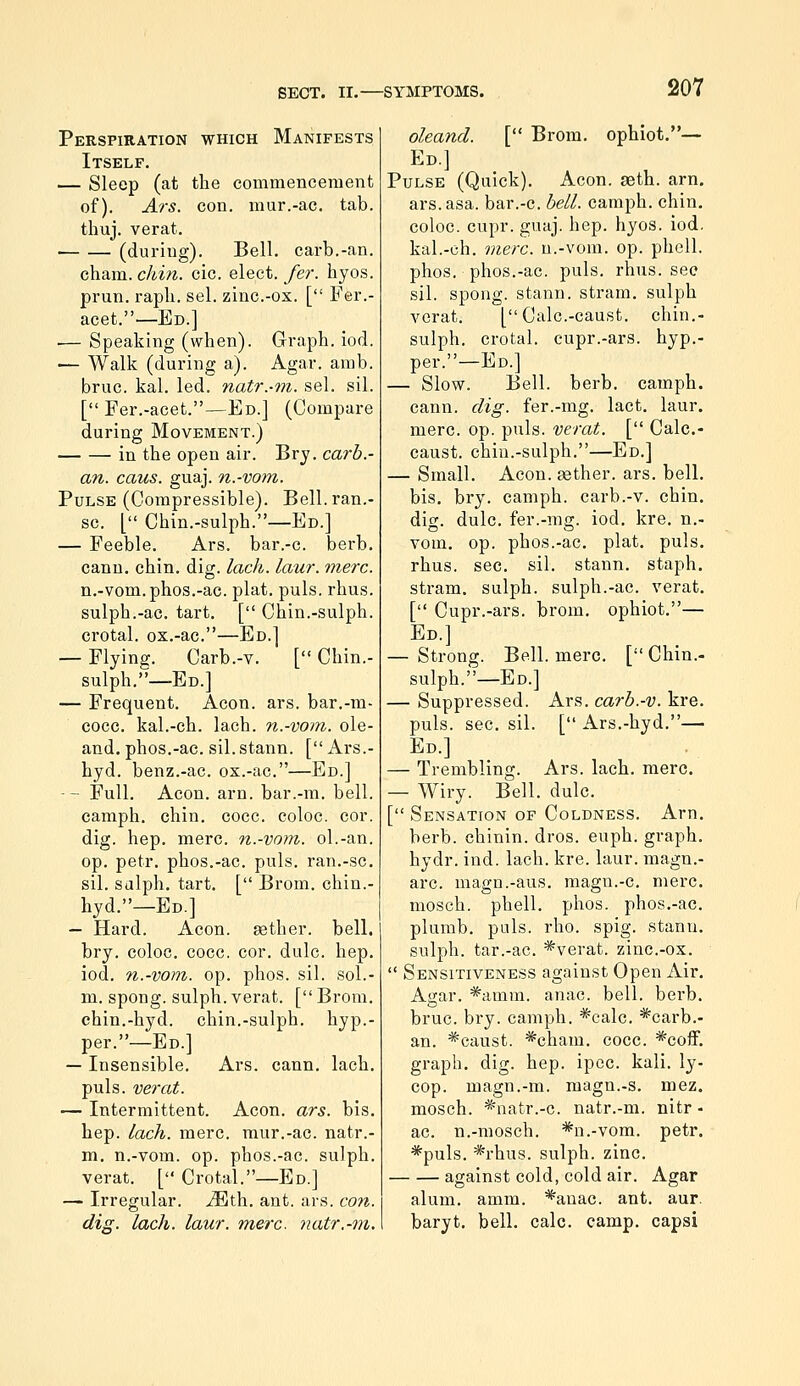 SECT. II.—SYMPTOMS. 207
Perspiration which Manifests
Itself.
— Sleep (at the commencement
of). Ars. con. mur.-ac. tab.
thuj. verat.
— — (during). Bell. carb.-an.
cham. chin. cic. elect. fer. hyos.
prun. raph. sel. zinc.-ox. [“ Fer.-
acet.”—Ed.]
— Speaking (when). Graph. iod.
— Walk (during a). Agar. amb.
bruc. kal. led. natr.-m. sel. sil.
[“ Fer.-acet.”—Ed.] (Compare
during Movement.)
— — in the open air. Bry. carb.-
an. caus. guaj. n.-vom.
Pulse (Compressible). Bell. ran.-
sc. [“ Chin.-sulph.”—Ed.]
— Feeble. Ars. bar.-c. berb.
cann. chin. dig. lach. laur. merc.
n.-vom. phos.-ac. plat. puls. rhus.
sulph.-ac. tart. [“ Chin.-sulph.
crotal. ox.-ac.”—Ed.]
— Flying. Carb.-v. [“ Chin.-
sulph.”—Ed.]
— Frequent. Acon. ars. bar.-m-
cocc. kal.-ch. lach. n.-vom. ole-
and. phos.-ac. sil. stann. [“ Ars.-
hyd. benz.-ac. ox.-ac.”—Ed.]
-- Full. Acon. arn. bar.-m. bell.
camph. chin. cocc. coloc. cor.
dig. hep. merc. n.-vom. ol.-an.
op. petr. phos.-ac. puls. ran.-sc.
sil. sulph. tart. [“ Brom. chin.-
hyd.”—Ed.]
— Hard. Acon. æther. bell.
bry. coloc. cocc. cor. dulc. hep.
iod. n.-vom. op. phos. sil. sol.-
m. spong. sulph. verat. [“ Brom.
chin.-hyd. chin.-sulph. hyp.-
per.”—Ed.]
— Insensible. Ars. cann. lach.
puls. verat.
— Intermittent. Acon. ars. bis.
hep. lach. merc. mur.-ac. natr.-
m. n.-vom. op. phos.-ac. sulph.
verat. [“ Crotal.”—Ed.]
— Irregular. Æth. ant. ars. con.
dig. lach. laur. merc. natr.-m.
oleand. [“ Brom. ophiot.”—
Ed.]
Pulse (Quick). Acon. æth. arn.
ars. asa. bar.-c. bell. camph. chin.
coloc. cupr. guaj. hep. hyos. iod.
kal.-ch. merc. n.-vom. op. phell.
phos. phos.-ac. puls. rhus. sec
sil. spong. stann. stram. sulph
verat. [“ Calc.-caust. chin.-
sulph. crotal. cupr.-ars. hyp.-
per.”—Ed.]
— Slow. Bell. berb. camph.
cann. dig. fer.-mg. lact. laur.
merc. op. puls. verat. [“ Calc.-
caust. chin.-sulph.”—Ed.]
— Small. Acon. æther. ars. bell.
bis. bry. camph. carb.-v. chin.
dig. dulc. fer.-mg. iod. kre. n.-
vom. op. phos.-ac. plat. puls.
rhus. sec. sil. stann. staph.
stram. sulph. sulph.-ac. verat.
[“ Cupr.-ars. brom. ophiot.”—
Ed.]
— Strong. Bell. merc. [“ Chin.-
sulph.”—Ed.]
— Suppressed. Ars. carb.-v. kre.
puls. sec. sil. [“ Ars.-hyd.”—
Ed.]
— Trembling. Ars. lach. merc.
— Wiry. Bell. dulc.
[“ Sensation of Coldness. Arn.
berb. chinin. dros. euph. graph.
hydr. ind. lach. kre. laur. magn.-
arc. magn.-aus. magn.-c. merc.
mosch. phell. phos. phos.-ac.
plumb. puls. rho. spig. stann.
sulph. tar.-ac. *verat. zinc.-ox.
“ Sensitiveness against Open Air.
Agar. *amm. anac. bell. berb.
bruc. bry. camph. *calc. *carb.-
an. *caust. *cham. cocc. *coff.
graph. dig. hep. ipec. kali. ly-
cop. magn.-m. magn.-s. mez.
mosch. *natr.-c. natr.-m. nitr-
ac. n.-mosch. *n.-vom. petr.
*puls. *rhus. sulph. zinc.
— — against cold, cold air. Agar
alum. amm. *anac. ant. aur.
baryt. bell. calc. camp. capsi